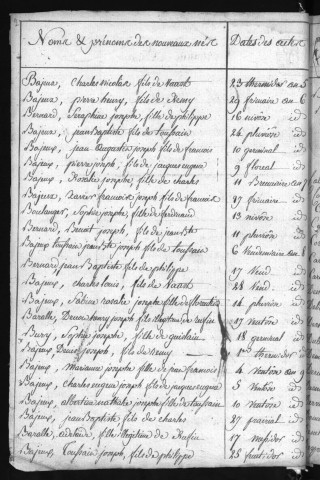 Noms & prénoms des nouveaux nés Dates des actes
Bajeux, charles nicolas fils de 23 thermidor an 5
Bajeux, pierre henry, fils de Remy 29 frimaire an 6
Bernard, Seraphine josephe, fille de philippe 16 nivôse id
Bajeux, jean Baptiste fils de toussain 24 pluviôse id
Bajeux, jean augustin joseph fils de francois 10 germinal id
Bajeux, pierre joseph, fils de jacques eugne 9 floreal id
Bajeux, Rosalie josephe, fille de charles 11 Brumaire an 7
Bajeux, Xavier francois joseph fils de francois 27 frimaire id
Boulanger, Sophie josephe, fille de ferdinand 13 nivôse id
Bernard, Benoit joseph, fils de jean Bte 11 pluviôse id
Bajeux toussain jean Bte joseph fils de toussain 6 Vendemiaire an 8
Bernard jean Baptiste fils de philippe 17 Vend. id
Bajeux, charles louis, fils de 28 Vend. id
Bajeux, rosalie josephe fille de 14 pluviôse id
Baralle, henry joseph fils 17 ventôse id
Bury, Sophie josephe, fille de guislain 18 germinal id
Bajeux joseph, fils de Remy 1er thermidor id
Bajeux, Marianne josephe, fille de jean francois 4 ventôse an 9
Bajeux, charles eugene joseph fils de jacques eugne 5 ventôse id
Bajeux, albertine nathalie josephe fille de toussain 10 ventôse id
Bajeux, jean Baptiste fils de charles 27 prairial id
Baralle, adelaide, fille 17 messidor id
Bajeux, Toussain joseph, fils de philippe 28 fructidor id